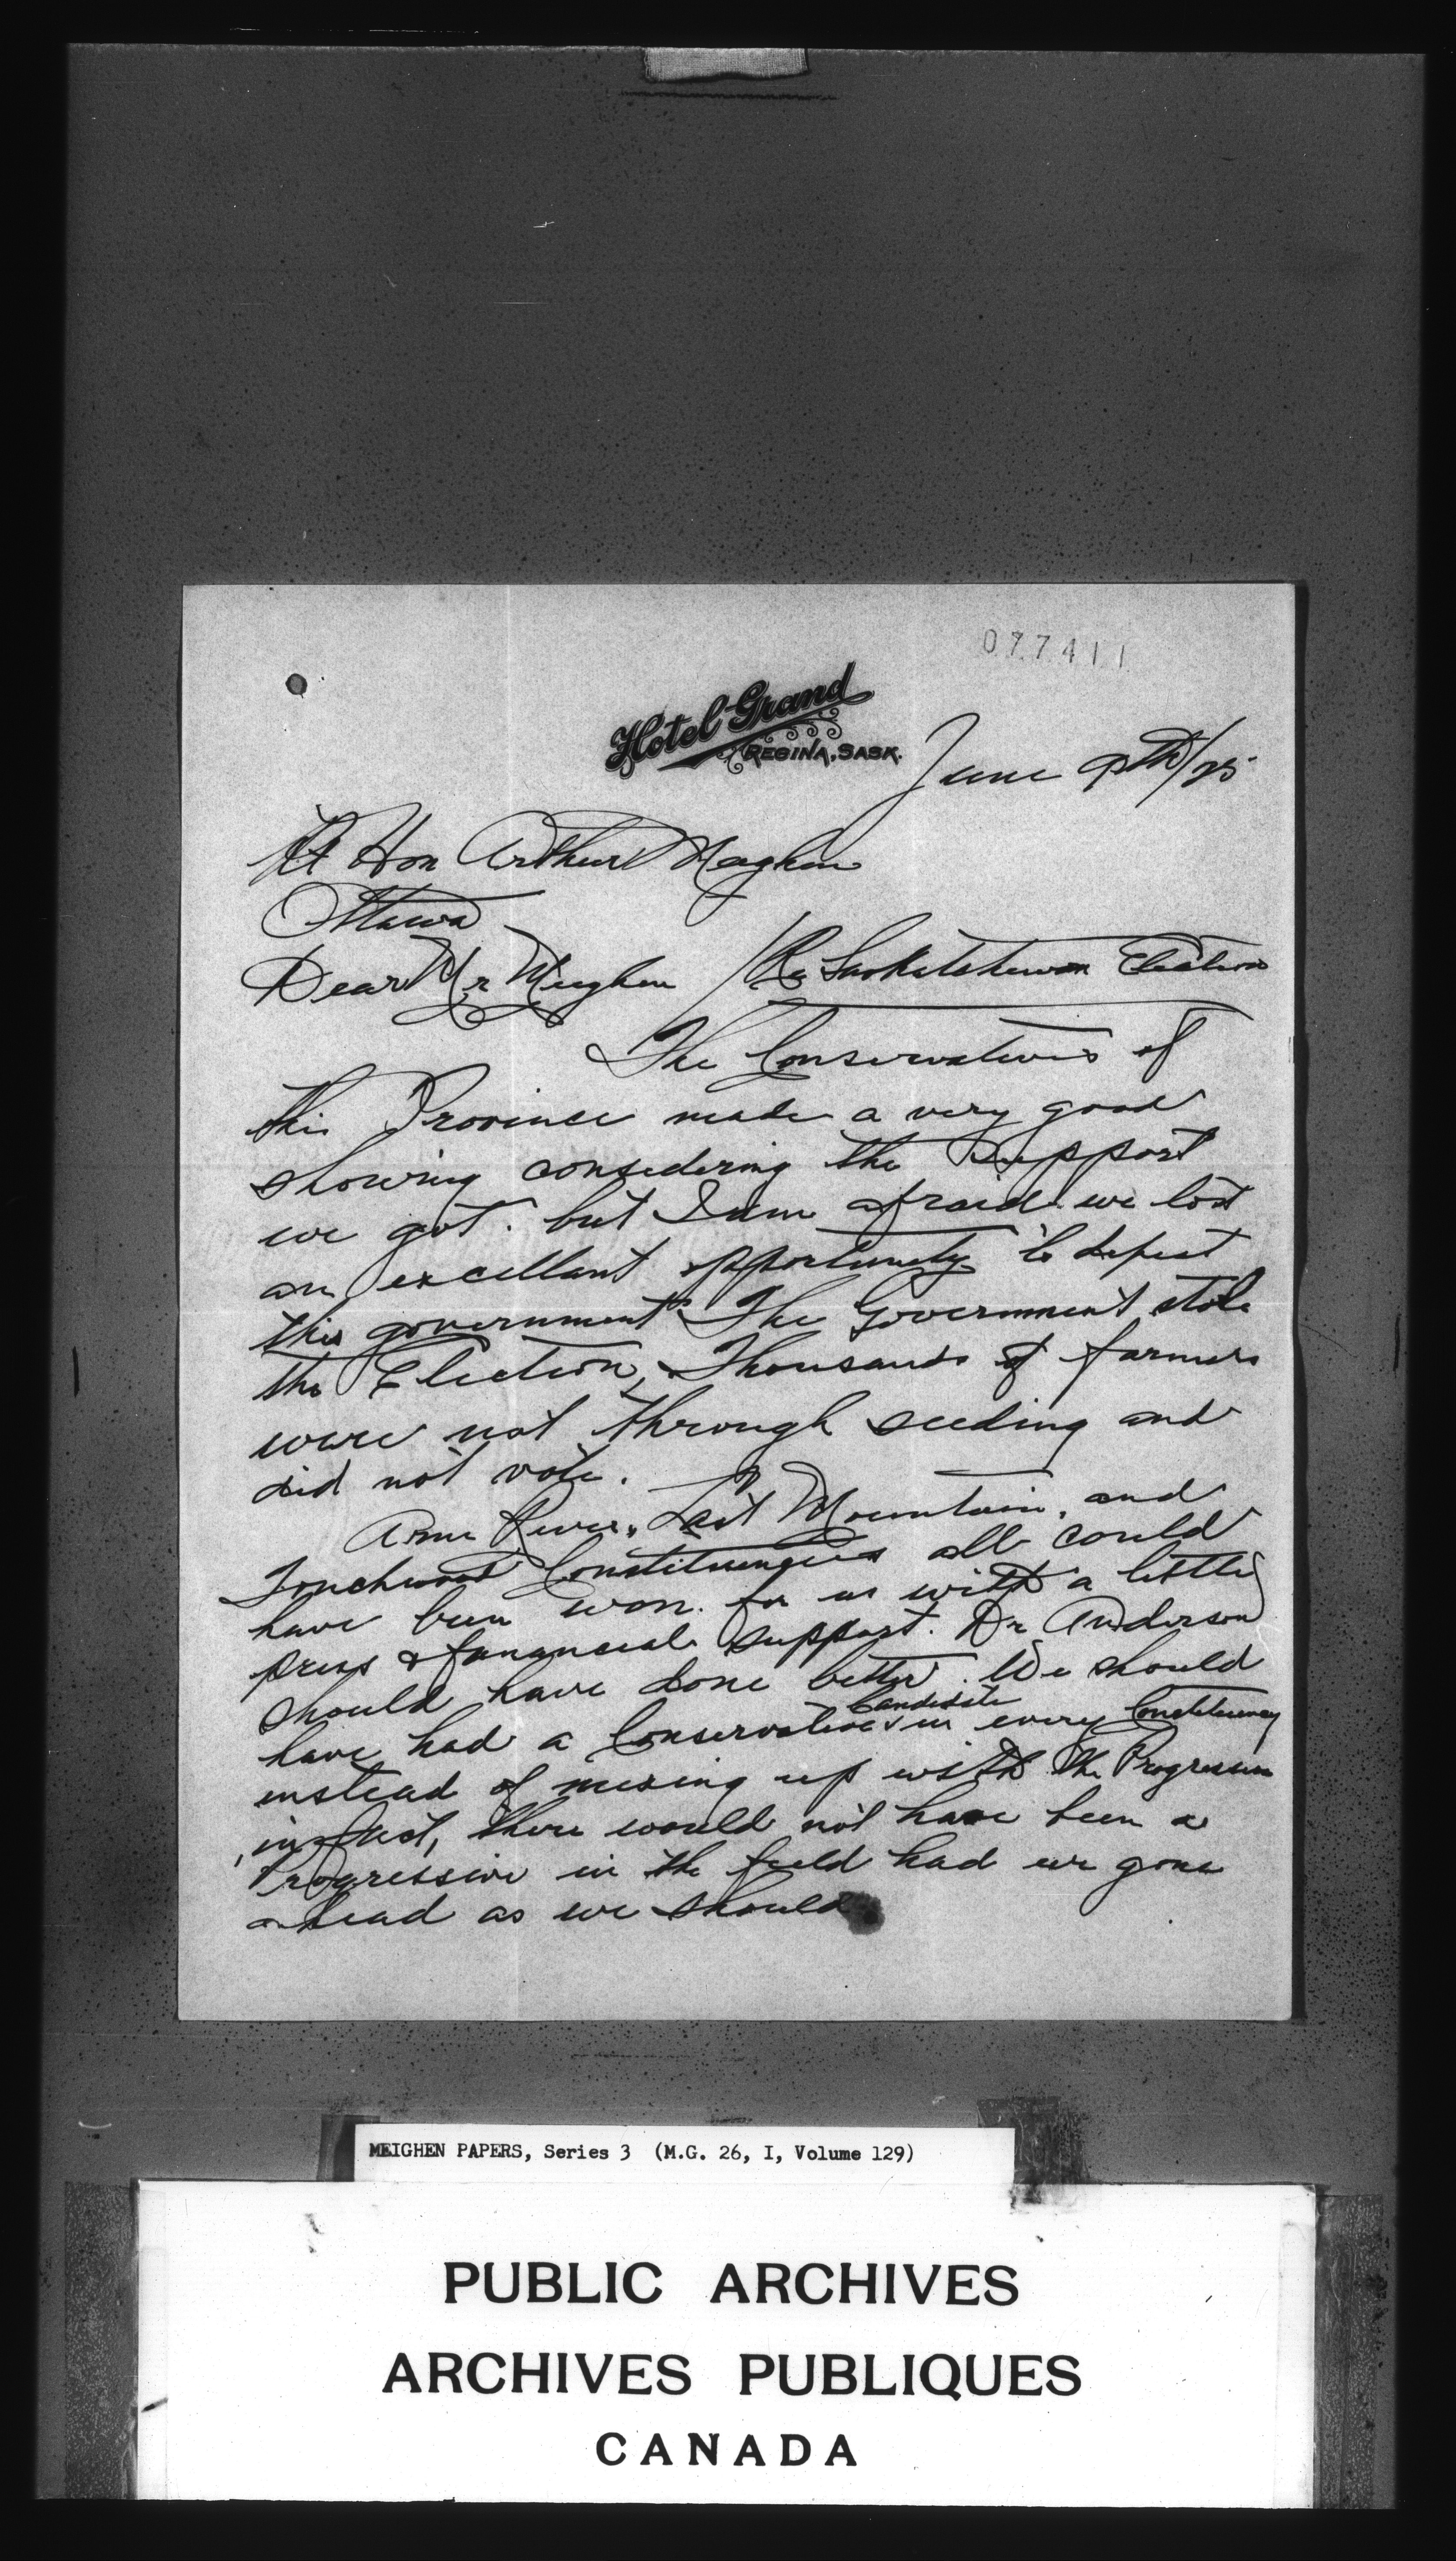 077411
Hotel Grand
REGINA, SASK.
June 9th/25
Rt Hon Arthur Meighen
Ottawa
Dear Mr Meighen / Re Saskatchewan Election
The Conservatives of
this Province made a very good
showing considering the support
we got. but I am afraid we lost
an excellant opportunity to defeat
this government. The Government stole
the Election, Thousands of farmers
were not through seeding and
did not vote.
Arm River, Last Mountain, and
Touchwood Constituencies all could
have been won for us with a little
press & financial support. Dr Anderson
should have done better. We should
have had a Conservative candidate in every Constituency
instead of mixing up with the Progressive
, in fact, there would not have been a
Progressive in the field had we gone
ahead as we should
MEIGHEN PAPERS, Series 3 (M.G. 26, I, Volume 129)
PUBLIC ARCHIVES
ARCHIVES PUBLIQUES
CANADA